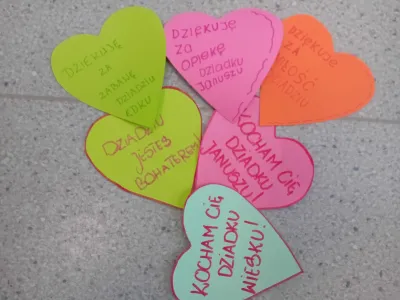 DZIĘKUJĘ
ZA
ZABAWĘ
DZIADZIU
DZIĘKUJĘ
ZA
OPIEKĘ
DZIADKU
JANUSZU
DZIĘKUJĘ
ZA
DZIADZIU
JESTEŚ
BOHATEREM!
KOCHAM CIĘ
DZIADKU
JANUSZU!
KOCHAM CIĘ
DZIADKU
WIEŚKU!